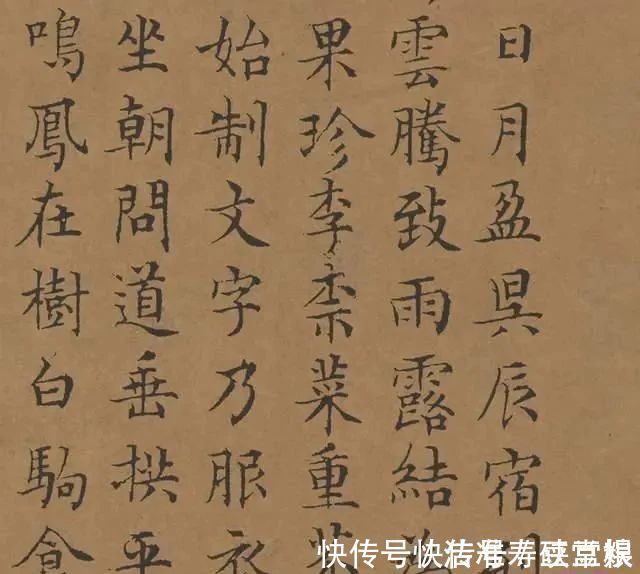 日月盈昃辰宿
雲騰致雨露結為
果珍李柰菜重芥
始制文字乃服衣
坐朝問道垂拱平
鳴鳳在樹白駒食
快传号